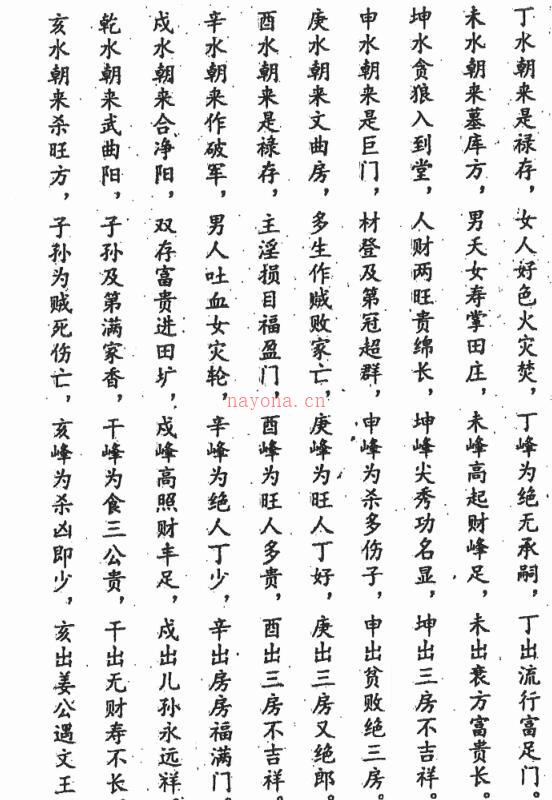 丁水朝来是禄存，女人好色火灾焚，丁峰为绝无承嗣，丁出流行富足门。
未水朝来墓库方，男夭女寿掌田庄，未峰高起财峰足，未出衰方富贵长。
坤水贪狼入到堂，人财两旺贵绵长，坤峰尖秀功名显，坤出三房不吉祥。
申水朝来是巨门，材登及第冠超群，申峰为杀多伤子，申出贫败绝三房。
庚水朝来文曲房，多生作贼败家亡，庚峰为旺人丁好，庚出三房又绝郎。
酉水朝来是禄存，主淫损目福盈门，酉峰为旺人多贵，酉出三房不吉祥。
辛水朝来作破军，男人吐血女灾轮，辛峰为绝人丁少，辛出房房福满门。
戍水朝来合净阳，双存富贵进田圹，戍峰高照财丰足，戍出儿孙永远祥。
乾水朝来武曲阳，子孙及第满家香，干峰为食三公贵，干出无财寿不长。
亥水朝来杀旺方，子孙为贼死伤亡，亥峰为杀凶即少，亥出姜公遇文王
nayona.cn